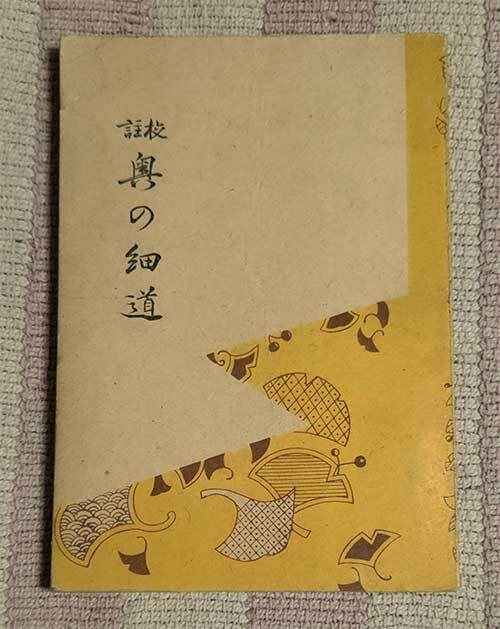 校註
奥の細道